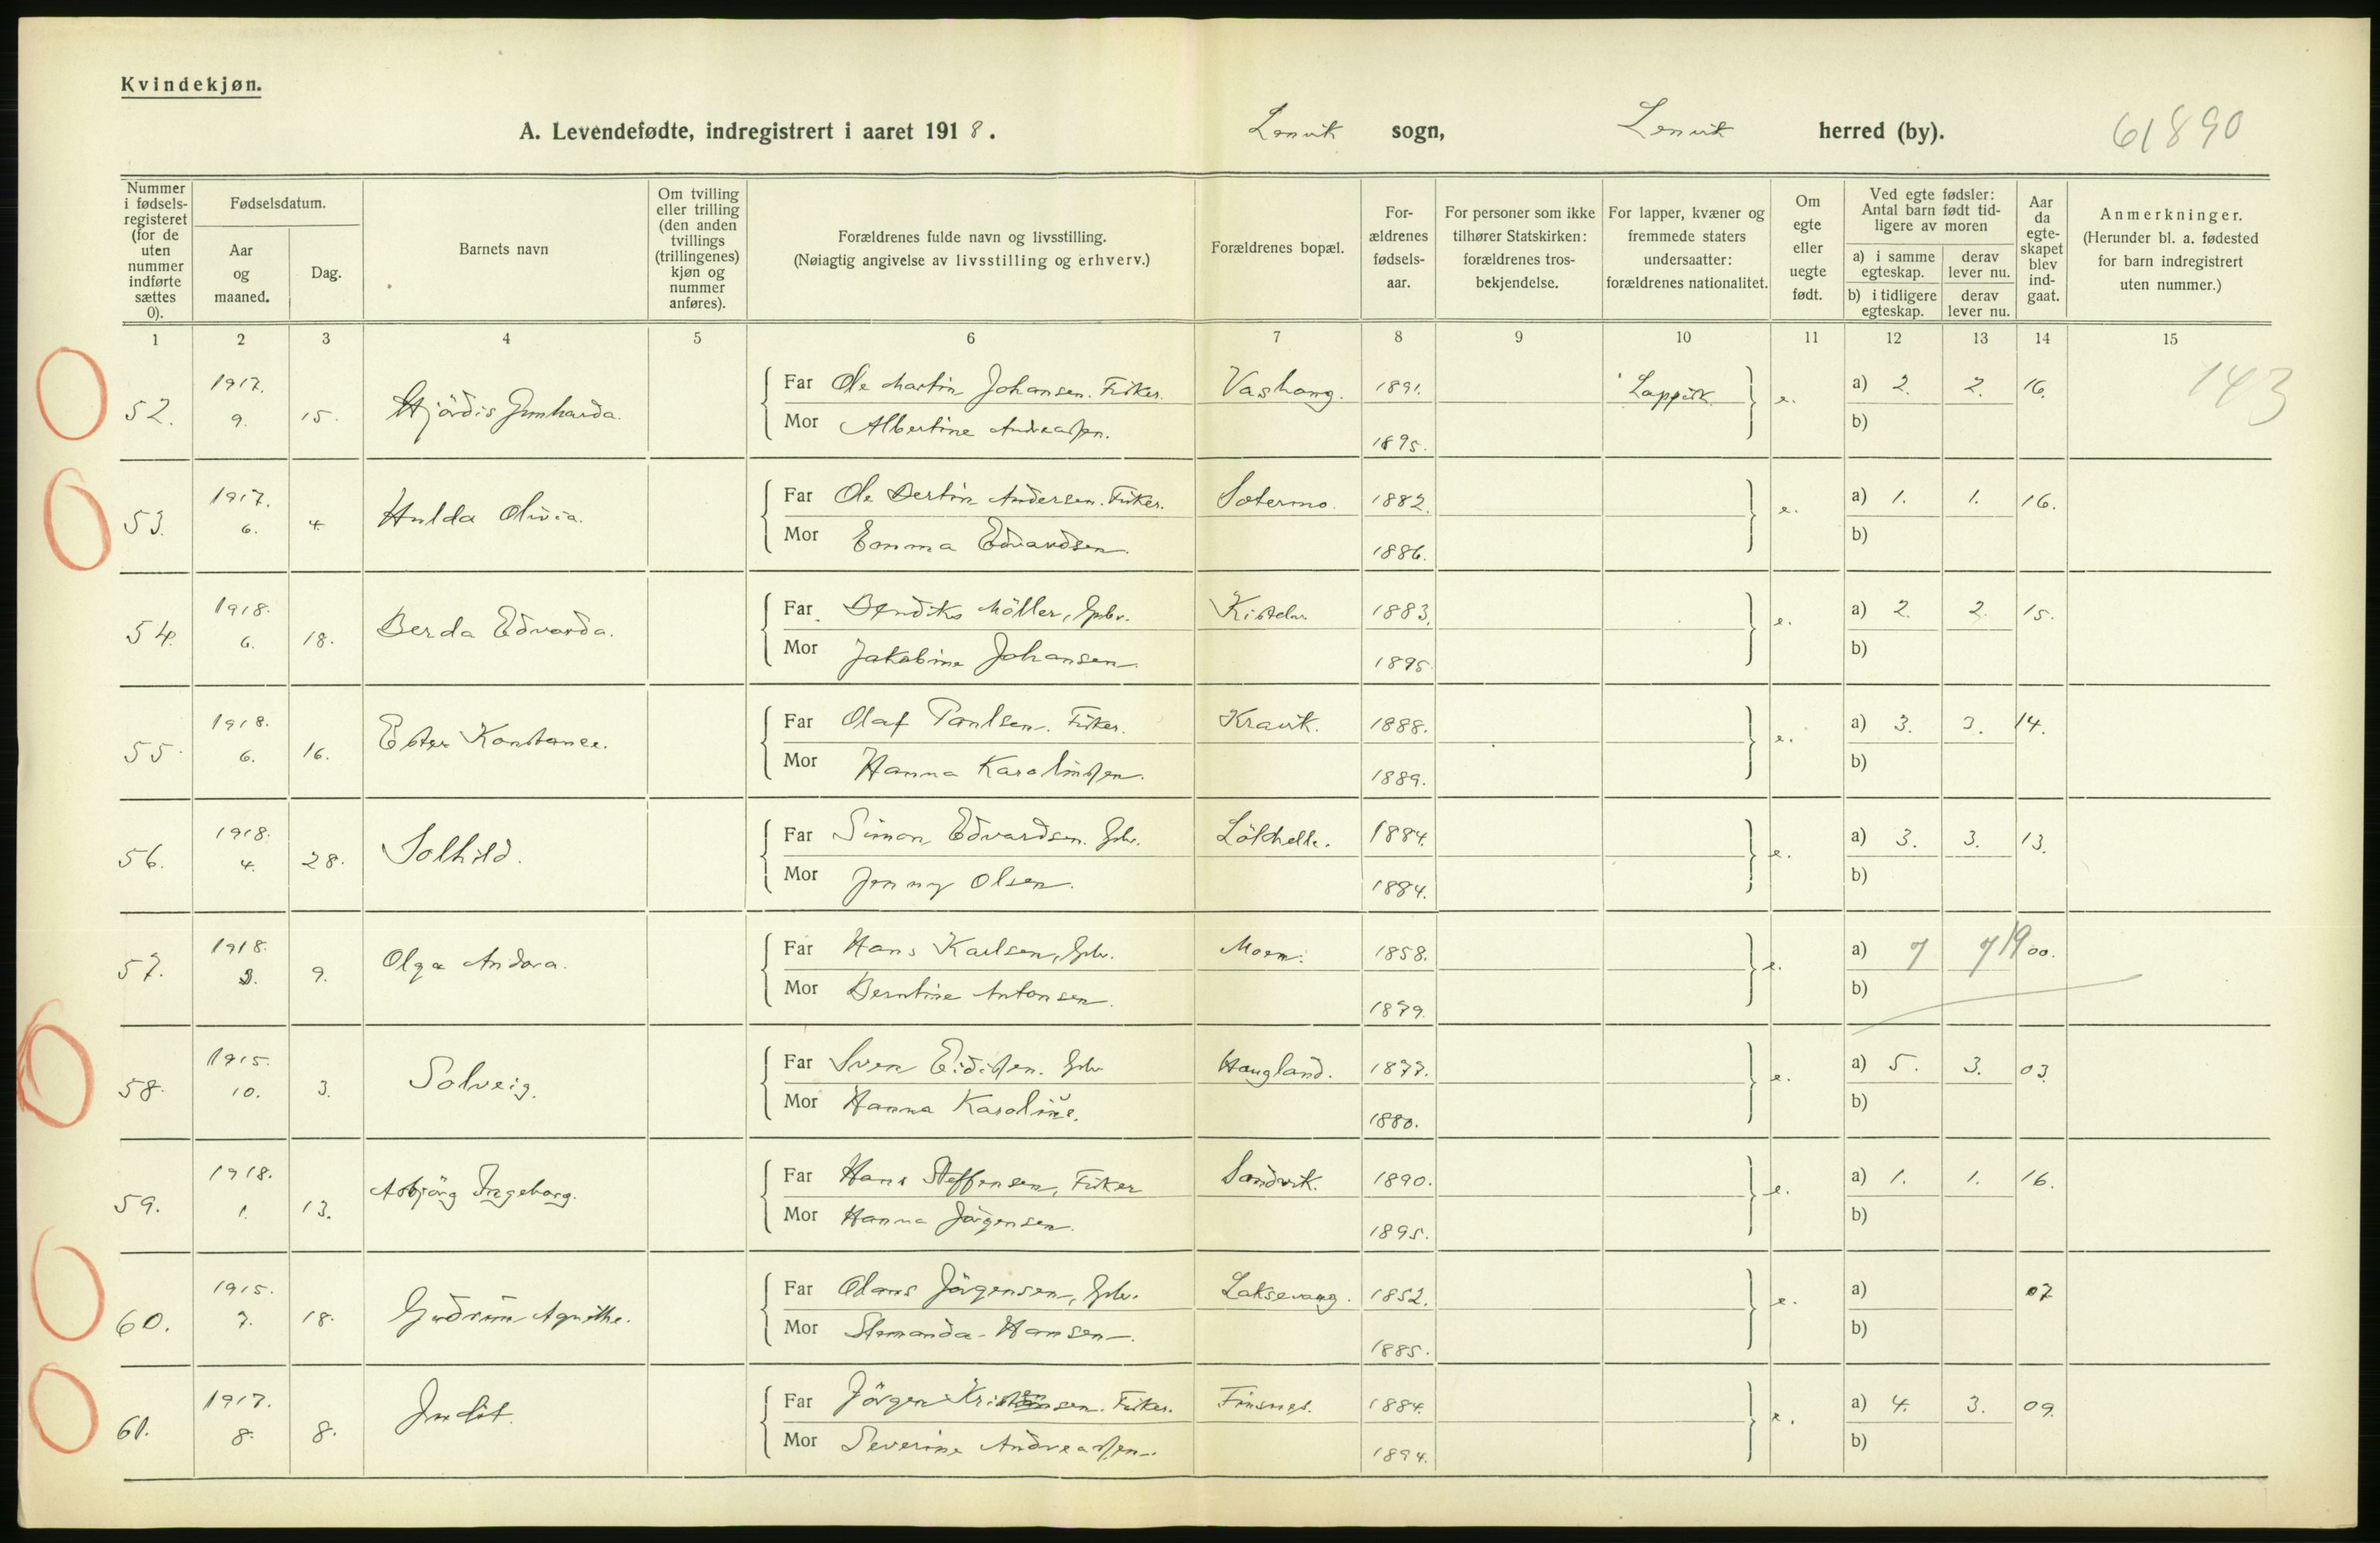 Kvindekjøn.
A. Levendefødte, indregistrert i aaret 1918. Lenvik sogn, Lenvik herred (by). 61890
Nummer i fødselsregisteret (for de uten nummer indførte sættes 0).
Fødselsdatum.
Aar og maaned.
Dag.
Barnets navn
Om tvilling eller trilling (den anden tvillings (trillingenes) kjøn og nummer anføres).
Forældrenes fulde navn og livsstilling.
(Nøiagtig angivelse av livsstilling og erhverv.)
Forældrenes bopæl.
Forældrenes fødselsaar.
For personer som ikke tilhører Statskirken: forældrenes trosbekjendelse.
For lapper, kvæner og fremmede staters undersaatter: forældrenes nationalitet.
Om egte eller uegte født.
Ved egte fødsler: Antal barn født tidligere av moren
a) i samme egteskap. derav lever nu.
b) i tidligere egteskap. derav lever nu.
Aar da egteskapet blev indgaat.
Anmerkninger.
(Herunder bl. a. fødested for barn indregistrert uten nummer.)
1 2 3 4 5 6 7 8 9 10 11 12 13 14 15
143
52. 1917. 9. 15. Hjördis Gunharda. Far Ole Martin Johansen. Fisker. 1891. Lappisk e. a) 2. 2. 16.
Mor Albertine Andreassen. 1895. b)
53. 1917. 6. 4. Hulda Olivia. Far Ole Bertin Andersen. Fisker. Sætermo. 1882. e. a) 1. 1. 16.
Mor Emma Edvardsen. 1886. b)
54. 1918. 6. 18. Berda Edvarda. Far Bendiks Möller, Gbr. 1883. e. a) 2. 2. 15.
Mor Jakobine Johansen. 1895. b)
55. 1918. 6. 16. Ester Konstance. Far Olaf Paulsen. Fisker. Kravik. 1888. e. a) 3. 3. 14.
Mor Hanna Karolinssen. 1889. b)
56. 1918. 4. 28. Solhild. Far Simon Edvardsen. Gbr. 1884. e. a) 3. 3. 13.
Mor Jenny Olsen. 1884. b)
57. 1918. 3. 9. Olga Andora. Far Hans Karlsen, Gbr. Moen. 1858. e. a) 7 7 1900.
Mor Berntine Antonsen. 1879. b)
58. 1915. 10. 3. Solveig. Far Sven Eidissen. Gbr. Haugland. 1877. e. a) 5. 3. 03.
Mor Hanna Karoline. 1880. b)
59. 1918. 1. 13. Asbjörg Ingeborg. Far Hans Steffensen, Fisker Sandvik. 1890. e. a) 1. 1. 16.
Mor Hanna Jörgensen. 1895. b)
60. 1915. 7. 18. Gudrun Agnethe. Far Olaus Jörgensen, Gbr. Laksevaag. 1852. e. a) 07
Mor Hansen. 1885. b)
61. 1917. 8. 8. Judit. Far Jörgen Kristiansen. Fisker. Finsnes. 1884. e. a) 4. 3. 09.
Mor Severine Andreassen. 1894. b)